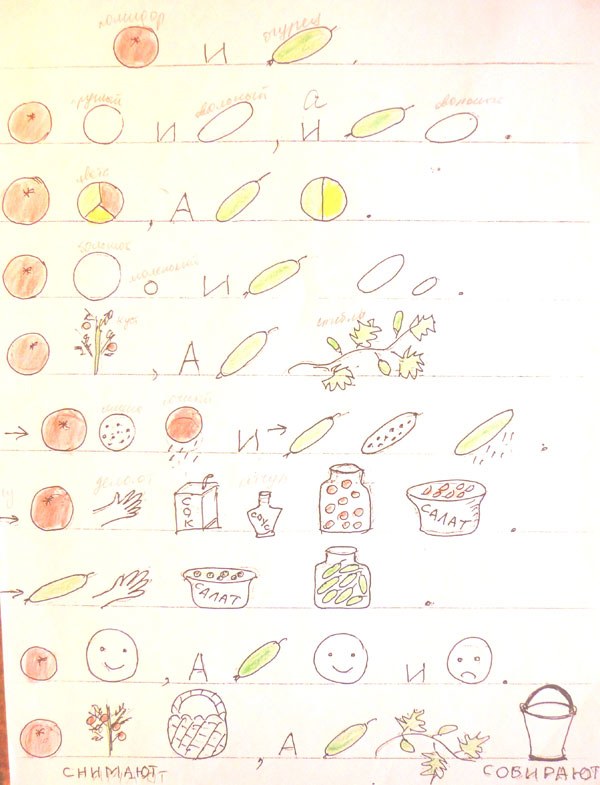 помидор огурец
И
круглый овальный а овальный
И , И .
цвета
, А .
большое маленький
И .
куст стебель
, А
много
И .
делают
СОК СОУС САЛАТ .
САЛАТ .
, А И .
, А
СНИМАЮТ СОБИРАЮТ